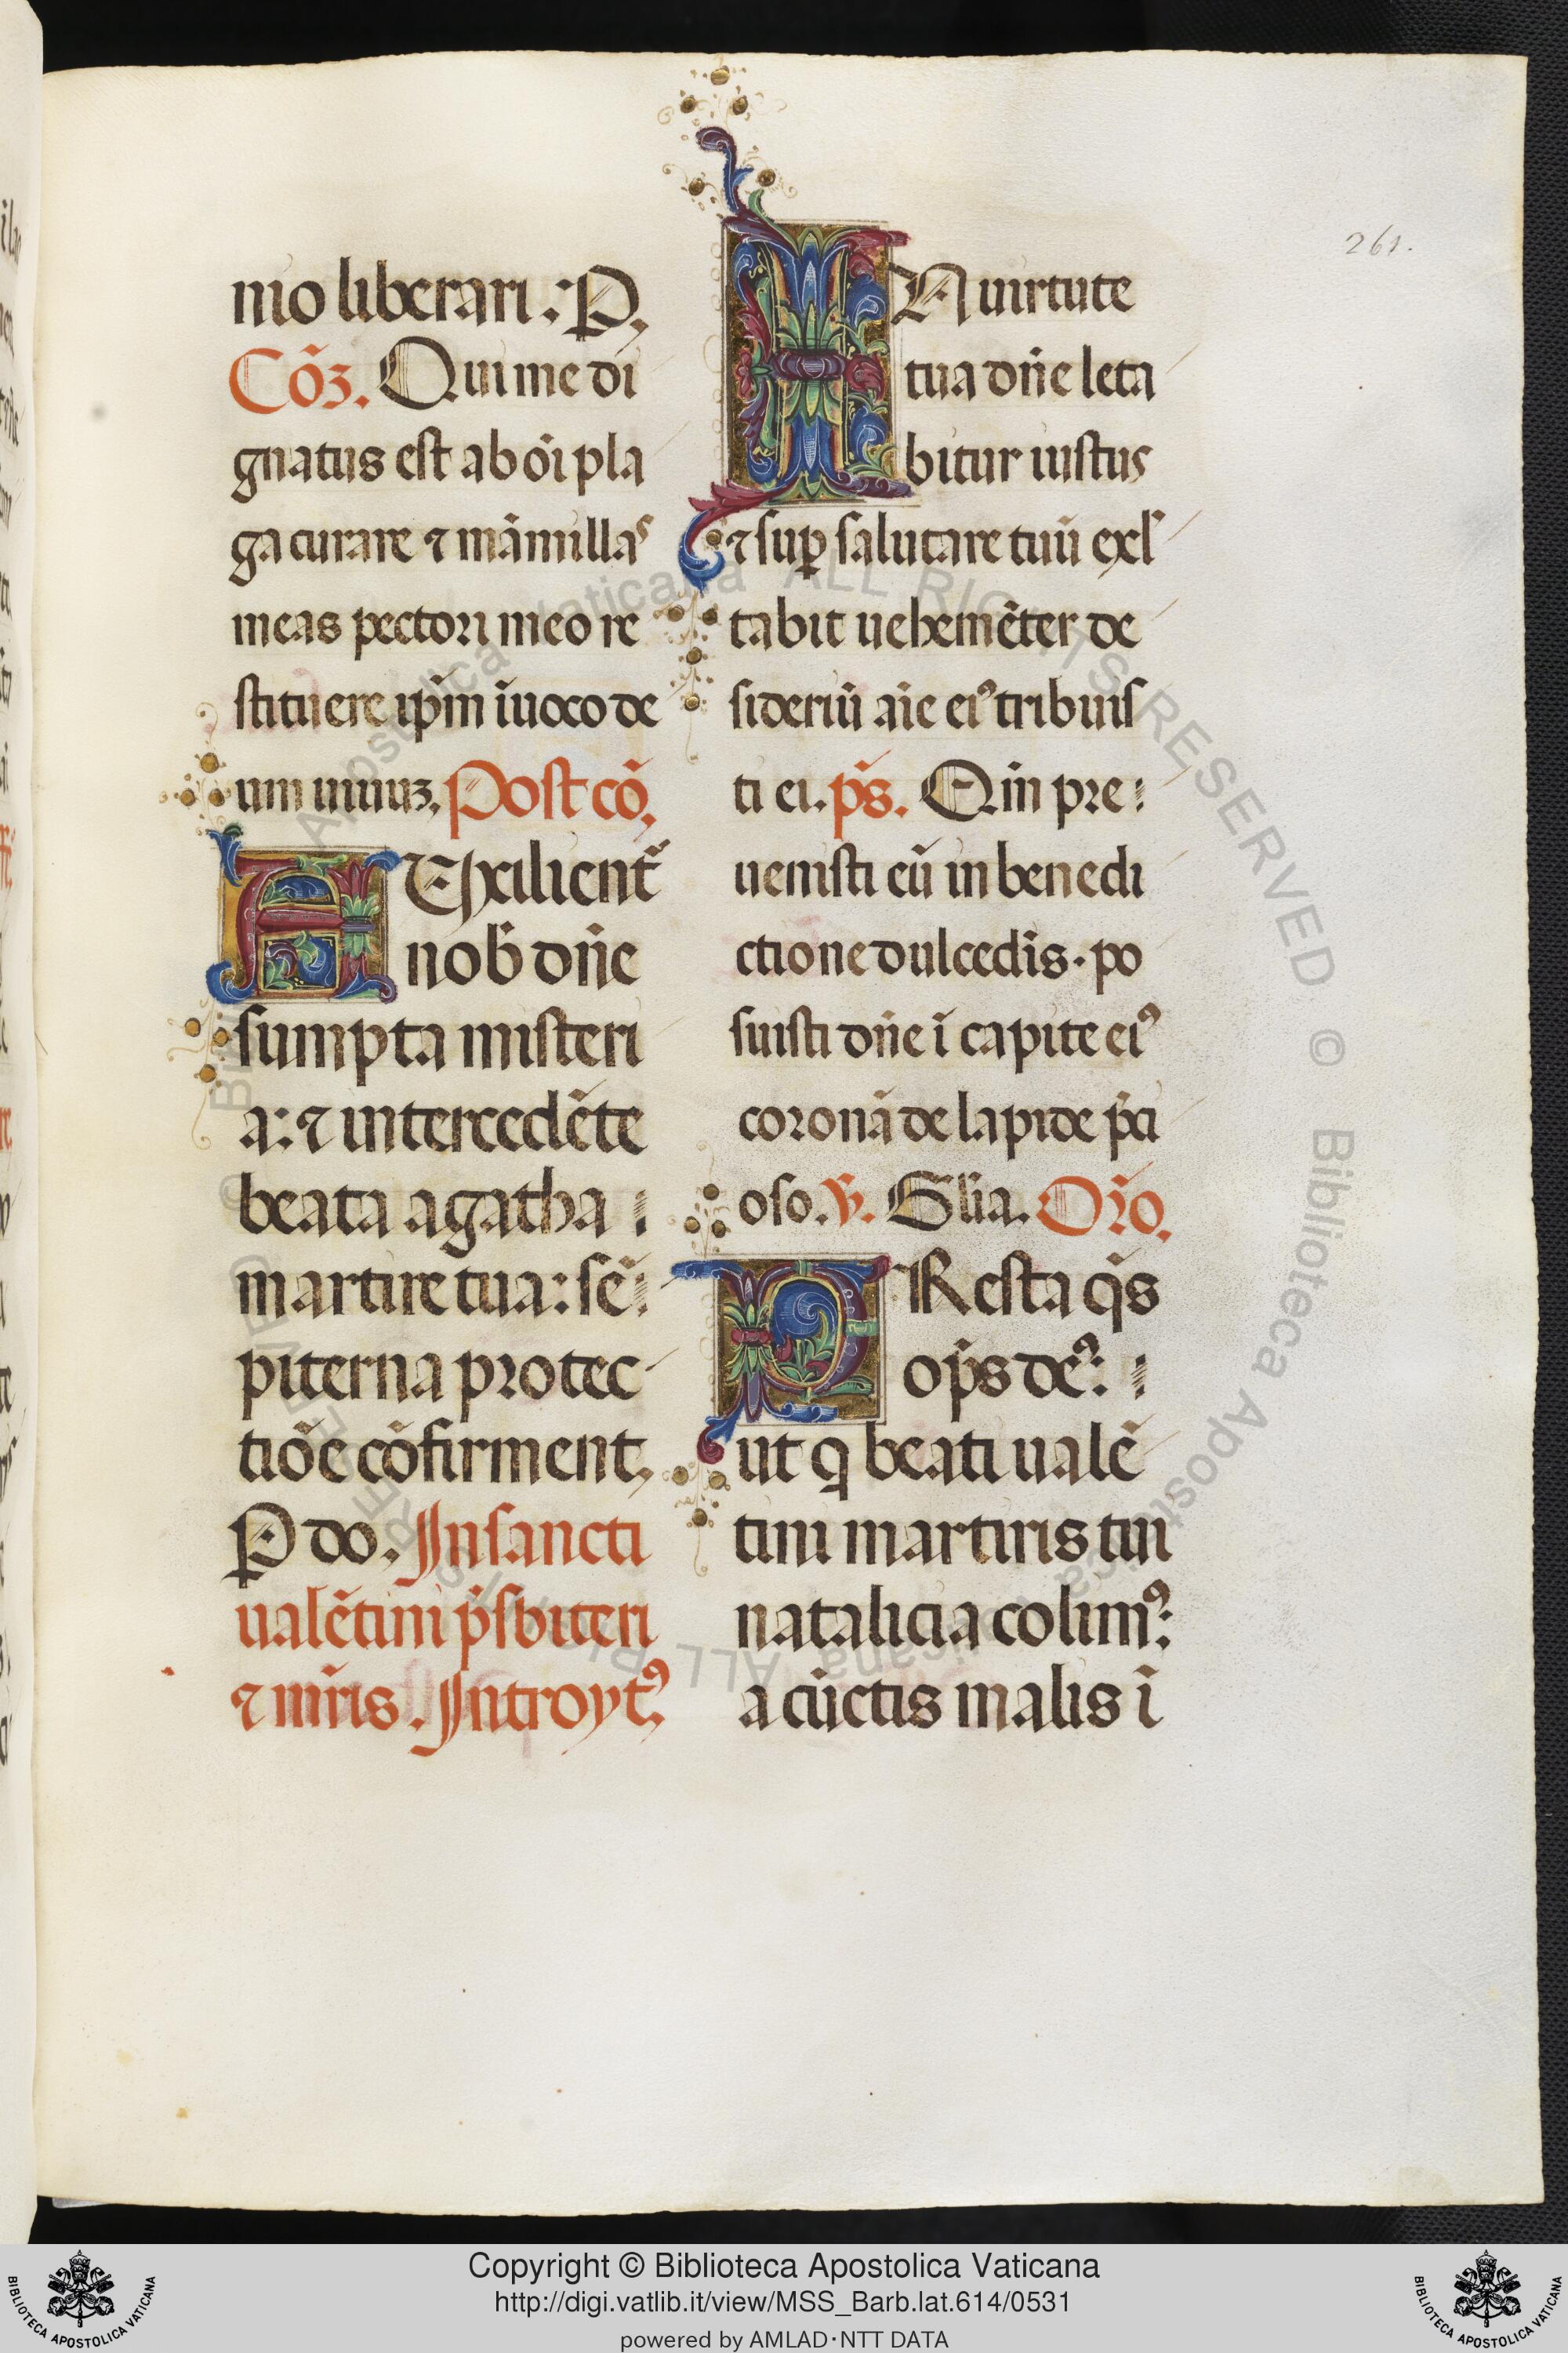 261.
nio liberari: P,
Cōꝫ. Qui me di
gnatus est ab oī pla
ga curare ⁊ māmillas
meas pectori meo re
stituere ip̄m īuoco de
um uiuuꝫ. Post cō,
AExilient᷑
nob̄ dn̄e
sumpta misteri
a: ⁊ intercedēte
beata agatha
martire tua: sē
piterna protec
tiōe cōfirment,
P do. In sancti
ualētini p̄sbiteri
⁊ mr̄is. Introytꝰ,
IN uirtute
tua dn̄e leta
bitur iustus
⁊ suꝑ salutare tuū exl̓
tabit uehemēter de
sideriū aīe eiꝰ tribuis
ti ei. p̄s. Qm̄ pre
uenisti eū in benedi
ctione dulcedīs. po
suisti dn̄e ī capite eiꝰ
coronā de lapide p̄ci
oso. ℣. Gl̄ia. Or̄o.
PResta q̄s
op̄s deꝰ:
ut q beati ualē
tini martiris tui
natalicia colimꝰ:
a cūctis malis ī
Copyright © Biblioteca Apostolica Vaticana
http://digi.vatlib.it/view/MSS_Barb.lat.614/0531
powered by AMLAD·NTT DATA
BIBLIOTECA APOSTOLICA VATICANA
BIBLIOTECA APOSTOLICA VATICANA